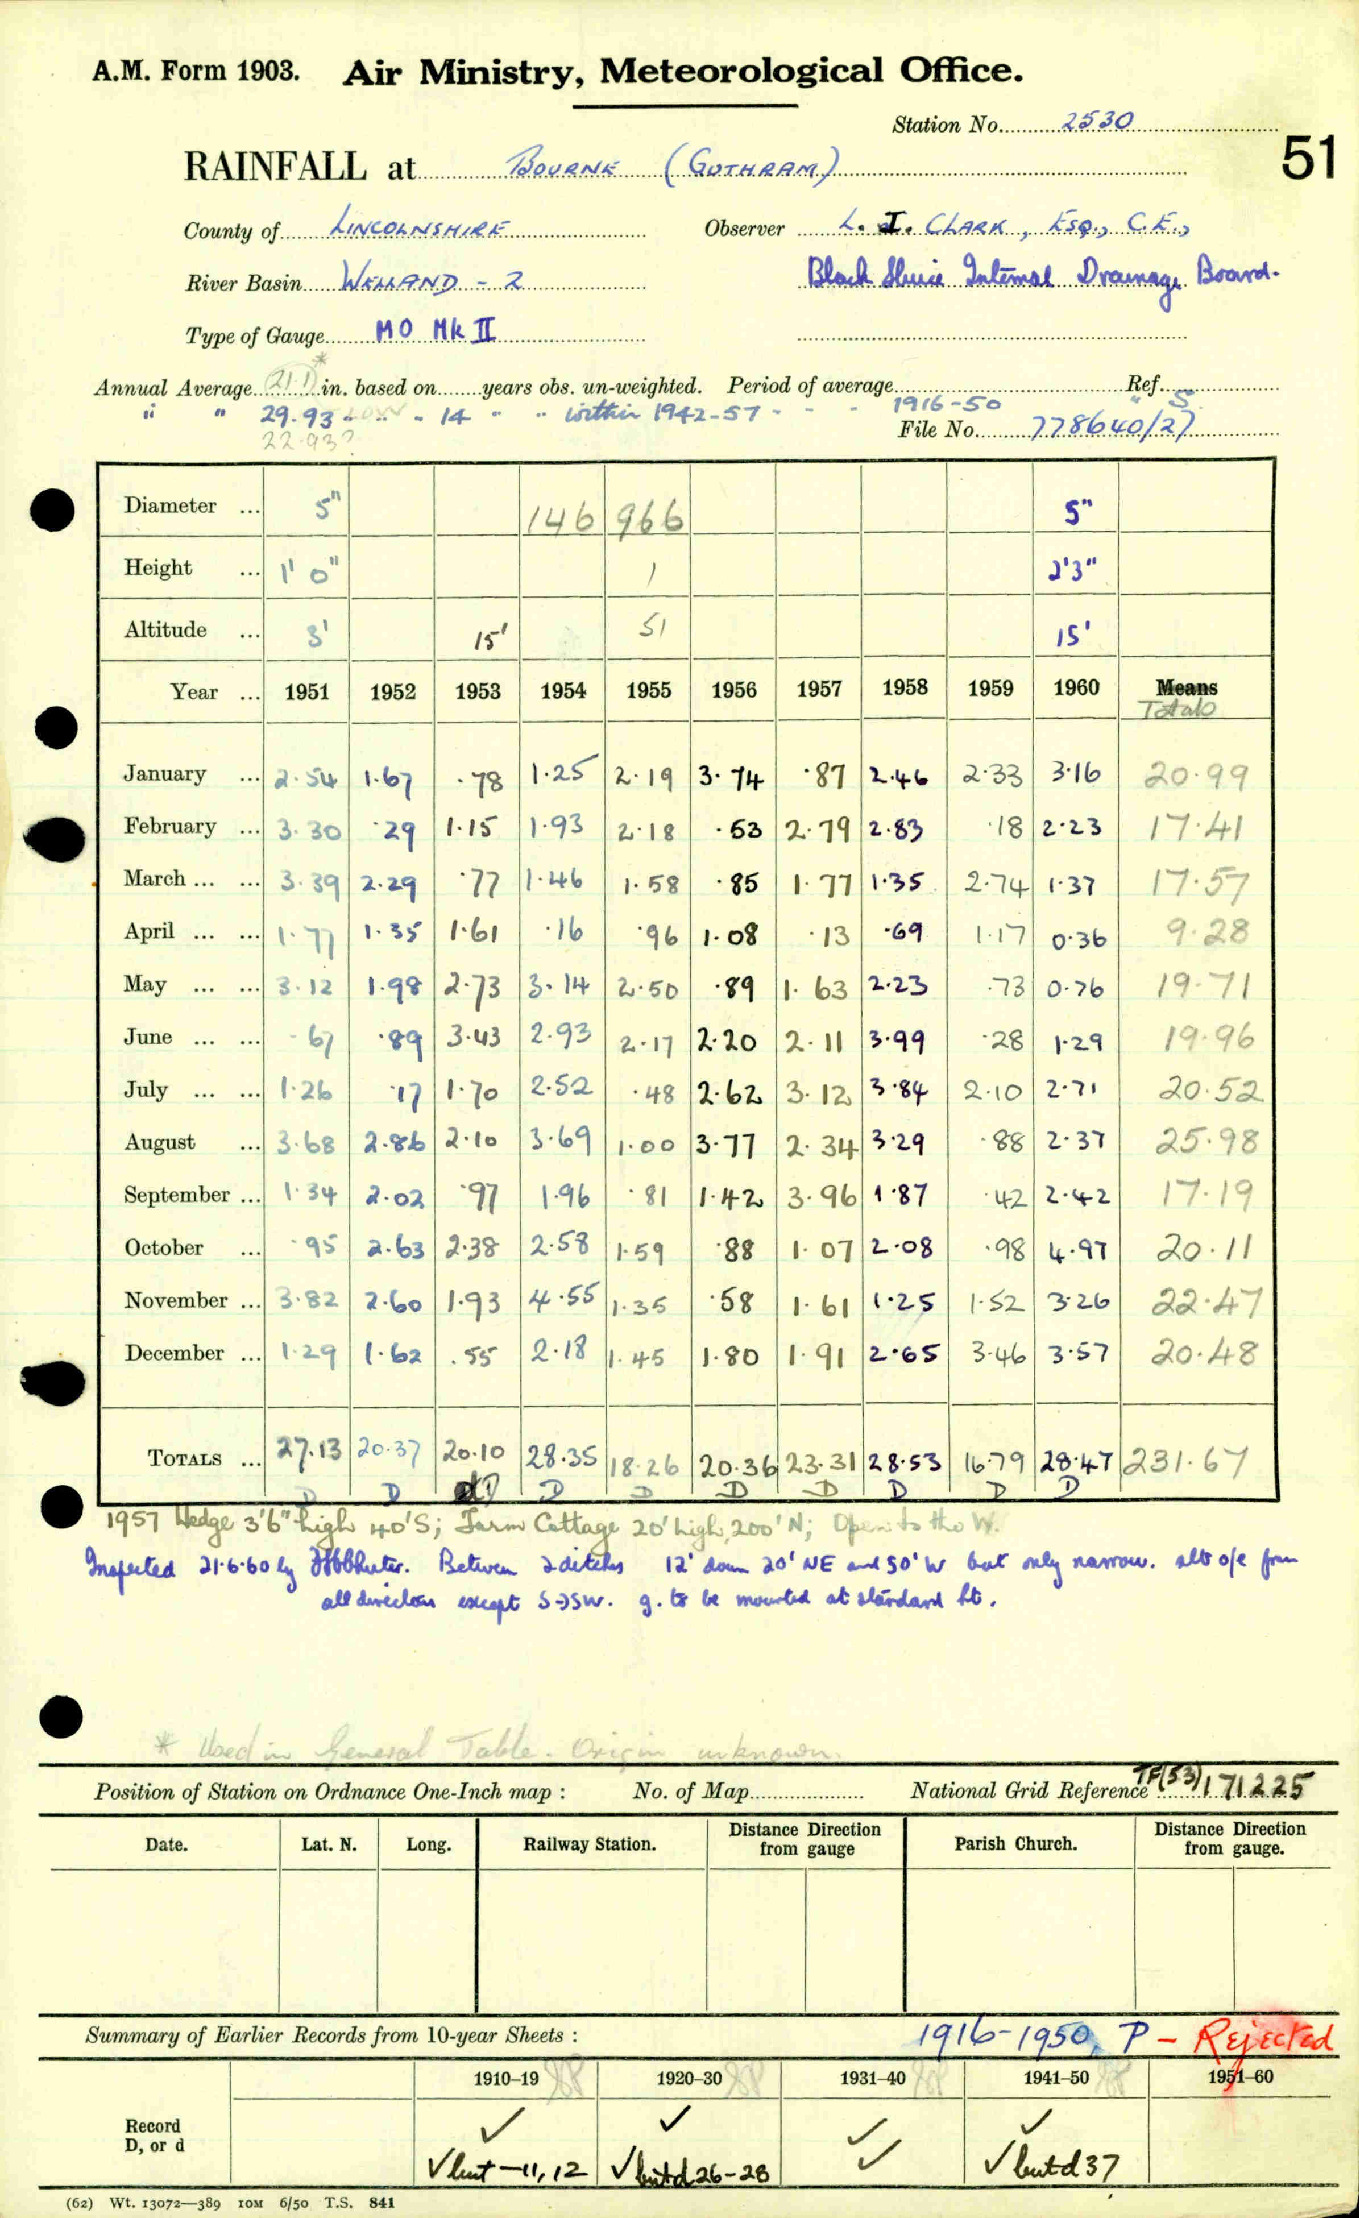 A.M. Form 1903. Air Ministry, Meteorological Office.
Station No. 2530
51
RAINFALL at BOURNE (GUTHRAM)
County of LINCOLNSHIRE Observer L. I. CLARK, ESQ., C.E.,
River Basin WELLAND - 2 Black Sluice Internal Drainage Board.
Type of Gauge MO Mk II
*
Annual Average (21.1) in. based on years obs. un-weighted. Period of average Ref.
" " 29.93 " " 14 " " within 1942-57 - - - 1916-50 " S.
22.93?
File No. 778640/27
Diameter ... 5" 146 966 5"
Height ... 1' 0" 1 2'3"
Altitude ... 3' 15' 51 15'
Year ... 1951 1952 1953 1954 1955 1956 1957 1958 1959 1960 Means
Totals
January ... 2.54 1.67 .78 1.25 2.19 3.74 .87 2.46 2.33 3.16 20.99
February ... 3.30 .29 1.15 1.93 2.18 .53 2.79 2.83 .18 2.23 17.41
March ... ... 3.39 2.29 .77 1.46 1.58 .85 1.77 1.35 2.74 1.37 17.57
April ... ... 1.77 1.35 1.61 .16 .96 1.08 .13 .69 1.17 0.36 9.28
May ... ... 3.12 1.98 2.73 3.14 2.50 .89 1.63 2.23 .73 0.76 19.71
June ... ... .67 .89 3.43 2.93 2.17 2.20 2.11 3.99 .28 1.29 19.96
July ... ... 1.26 .17 1.70 2.52 .48 2.62 3.12 3.84 2.10 2.71 20.52
August ... 3.68 2.86 2.10 3.69 1.00 3.77 2.34 3.29 .88 2.37 25.98
September ... 1.34 2.02 .97 1.96 .81 1.42 3.96 1.87 .42 2.42 17.19
October ... .95 2.63 2.38 2.58 1.59 .88 1.07 2.08 .98 4.97 20.11
November ... 3.82 2.60 1.93 4.55 1.35 .58 1.61 1.25 1.52 3.26 22.47
December ... 1.29 1.62 .55 2.18 1.45 1.80 1.91 2.65 3.46 3.57 20.48
TOTALS ... 27.13 20.37 20.10 28.35 18.26 20.36 23.31 28.53 16.79 28.47 231.67
D D D D D D D D D D
1957 Hedge 3'6" high 40'S; Farm Cottage 20' high, 200'N; Open to the W.
Inspected 21.6.60 by Between 2 ditches 12' down 20' NE and 50' W but only narrow. o/e from
all directions except S→SW. g. to be mounted at standard ht.
* Used in General Table. Origin unknown.
Position of Station on Ordnance One-Inch map : No. of Map National Grid Reference TF(53) 171225
Date. Lat. N. Long. Railway Station. Distance Direction from gauge Parish Church. Distance Direction from gauge.
Summary of Earlier Records from 10-year Sheets : 1916-1950, P - Rejected
1910–19 1920–30 1931–40 1941–50 1951–60
Record
D, or d
✓ ✓ ✓ ✓
✓ but -11, 12 ✓ but d 26-28 ✓ ✓ but d 37
(62) Wt. 13072—389 10M 6/50 T.S. 841